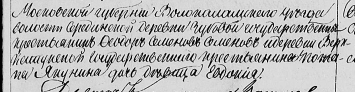 Московской губернии Волоколамского уезда
волости Срединской деревни Чубовой государственный
крестьянин Феодор Семенов Семенов и деревни Верх
государственного крестьянина
Якунина дочь девица Евдокия.